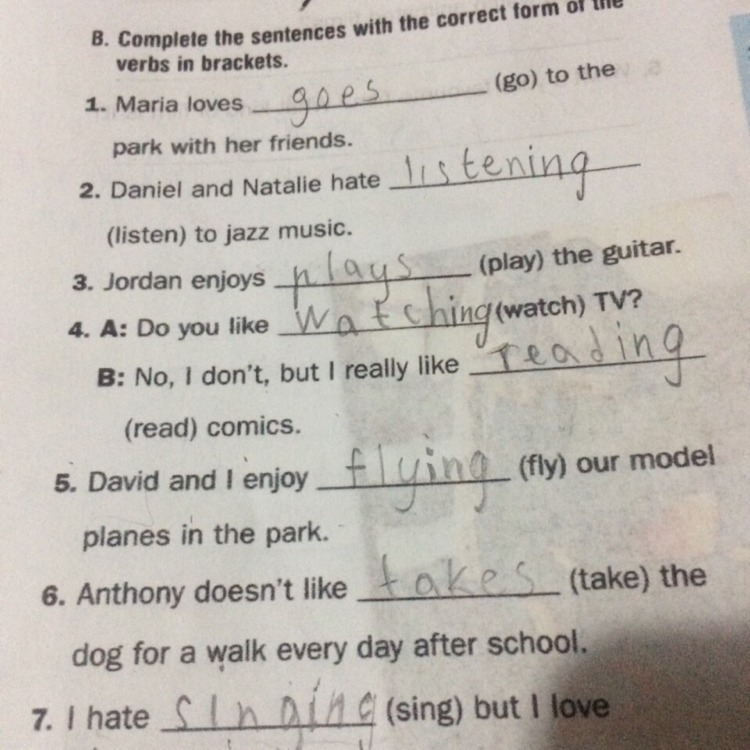 B. Complete the sentences with the correct form of the
verbs in brackets.
1. Maria loves goes (go) to the
park with her friends.
2. Daniel and Natalie hate listening
(listen) to jazz music.
3. Jordan enjoys plays (play) the guitar.
4. A: Do you like watching (watch) TV?
B: No, I don't, but I really like reading
(read) comics.
5. David and I enjoy flying (fly) our model
planes in the park.
6. Anthony doesn't like takes (take) the
dog for a walk every day after school.
7. I hate singing (sing) but I love